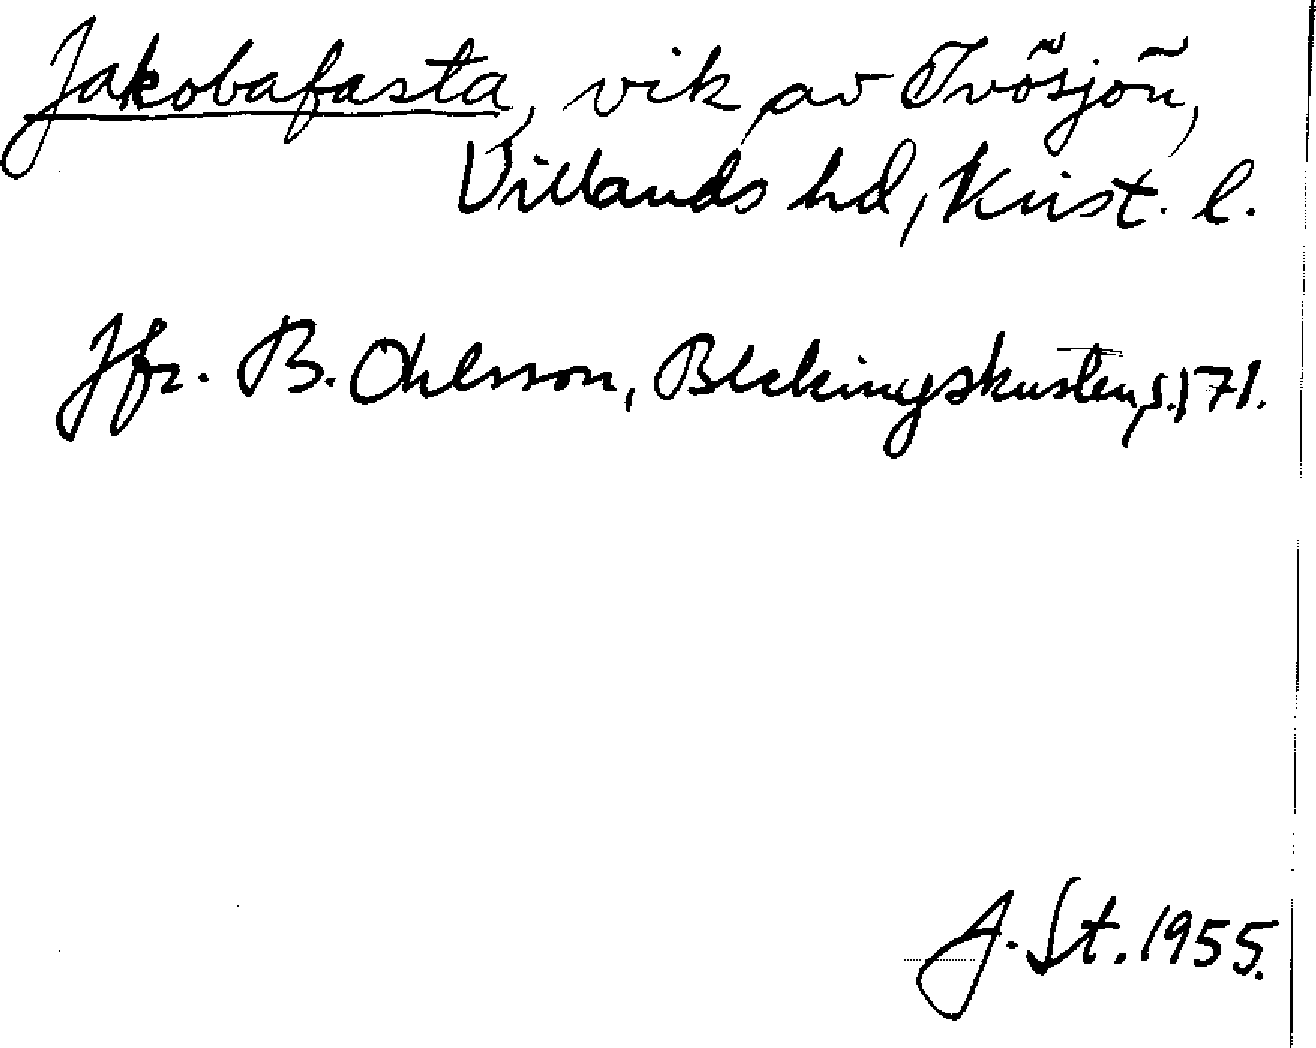 Jakobafasta, vik av Ivösjön,
Villands hd, Krist. l.
Jfr. B. Ohlsson, Blekingskusten, s. 171.
J. St. 1955.